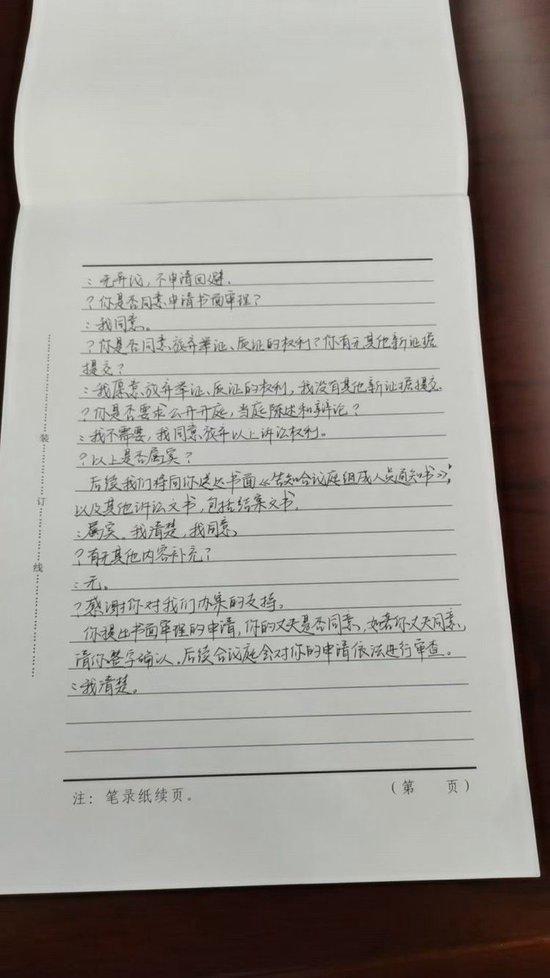 ：无异议，不申请回避。
？你是否同意申请书面审理？
：我同意。
？你是否同意放弃举证、质证的权利？你有无其他新证据
提交？
：我愿意放弃举证、质证的权利，我没有其他新证据提交。
？你是否要求公开开庭，当庭陈述和辩论？
：我不需要，我同意放弃以上诉讼权利。
？以上是否属实？
后续我们将向你送达书面《告知合议庭组成人员通知书》，
以及其他诉讼文书，包括结案文书。
：属实。我清楚，我同意。
？有无其他内容补充？
：无。
？感谢你对我们办案的支持。
你提出书面审理的申请，你的丈夫是否同意，如若你丈夫同意，
请你签字确认。后续合议庭会对你的申请依法进行审查。
：我清楚。
装
订
线
注：笔录纸续页。
（第 页）